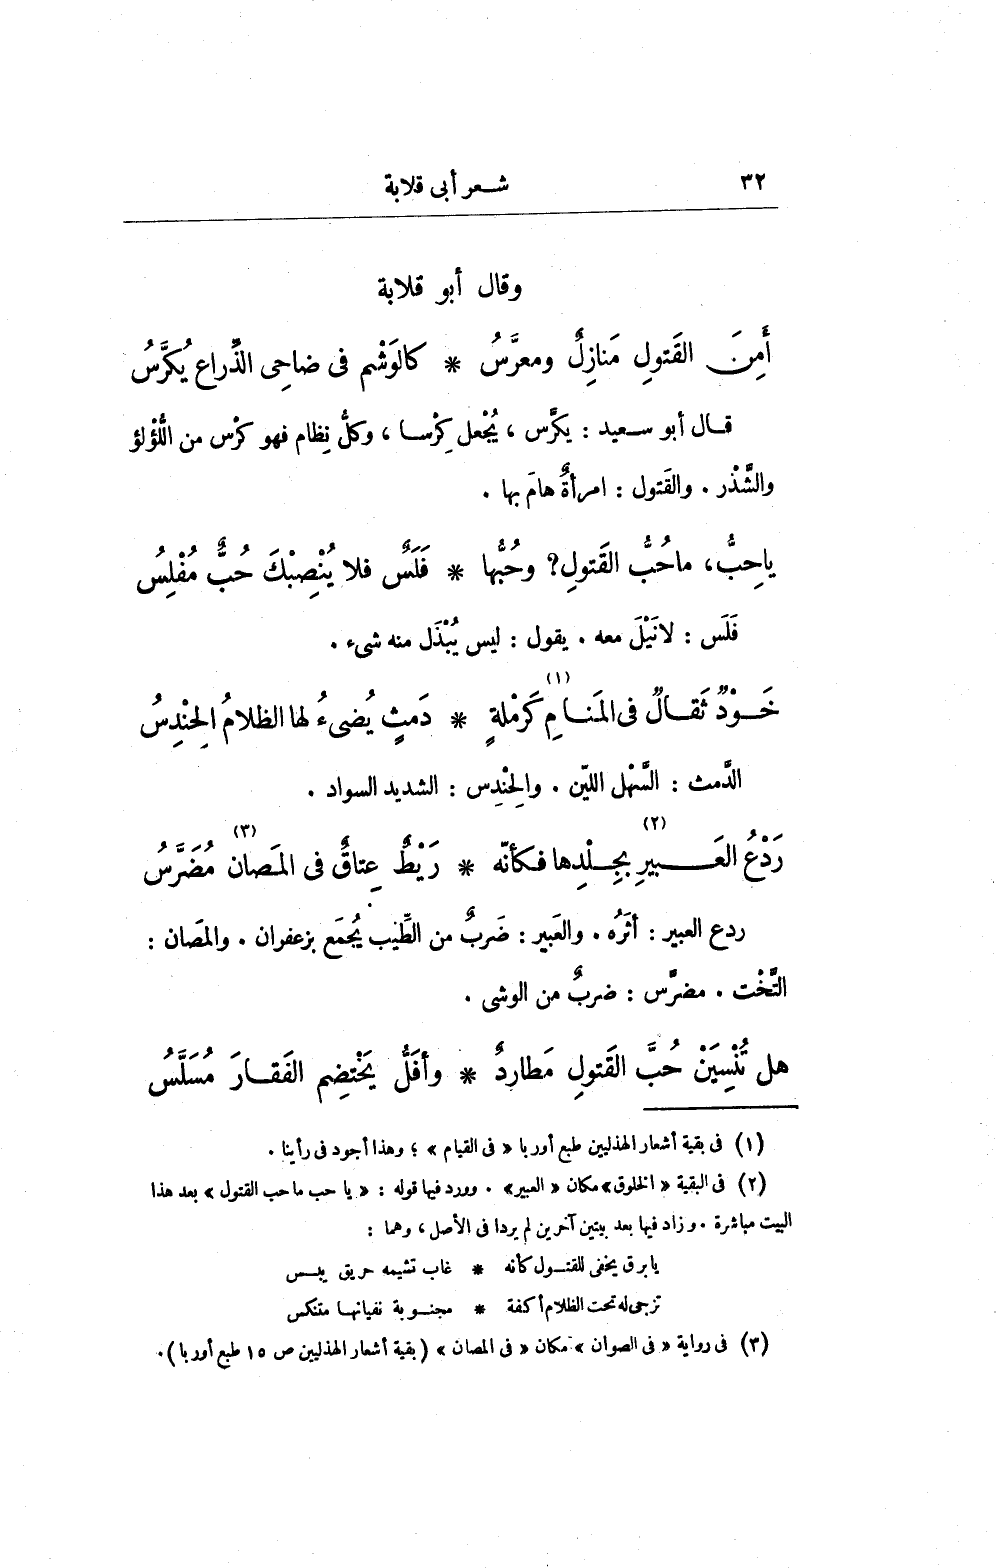 ٣٢ شعر أبى قلابة
وقال أبو قلابة
أَمِنَ القَتولِ مَنازِلٌ ومعرَّسُ * كالوَشْمِ فى ضاحِى الذِّراعِ يُكَرَّسُ
قال أبو سعيد : يكَّرَس ، يُجْعل كِرْسا ، وكلُّ نِظام فهو كرْس من اللُّؤْلؤ
والشَّذْر . والقَتول : امرأةٌ هامَ بها .
ياحِبُّ، ماحُبُّ القَتولِ؟ وحُبُّها * فَلَسٌ فلا يُنْصِبْكَ حُبٌّ مُفْلِسُ
فَلَس : لانَيْلَ معه . يقول : ليس يُبْذَل منه شىء .
خَوْدٌ ثَقالٌ فى المَنامِ (١) كَرَمْلةٍ * دَمثٍ يُضىءُ لها الظلامُ الحِنْدِسُ
الدَّمث : السَّهْل الليّن . والحِنْدِس : الشديد السواد .
رَدْعُ العَبيرِ (٢) بجِلْدِها فكأنّه * رَيْطٌ عِتاقٌ فى المَصان (٣) مُضَرَّسُ
ردع العبير : أثَرُه . والعَبير : ضَربٌ من الطِّيب يُجمَع بزعفران . والمَصان :
التَّخْت . مضرَّس : ضربٌ من الوشى .
هل تُنْسِيَنْ حُبَّ القَتولِ مَطارِدٌ * وأفَلُّ يَخْتضِم الفَقارَ مُسَلَّسُ
(١) فى بقية أشعار الهذليين طبع أوربا « فى القيام » ؛ وهذا أجود فى رأينا .
(٢) فى البقية « الخلوق » مكان « العبير » . وورد فيها قوله : « يا حب ما حب القتول » بعد هذا
البيت مباشرة . وزاد فيها بعد بيتين آخرين لم يردا فى الأصل ، وهما :
يا برق يخفى للقتول كأنه * غاب تشيمه حريق يبس
تزجى له تحت الظلام أكفة * مجنوبة نفيانها متنكس
(٣) فى رواية « فى الصوان » مكان « فى المصان » (بقية أشعار الهذليين ص ١٥ طبع أوربا).